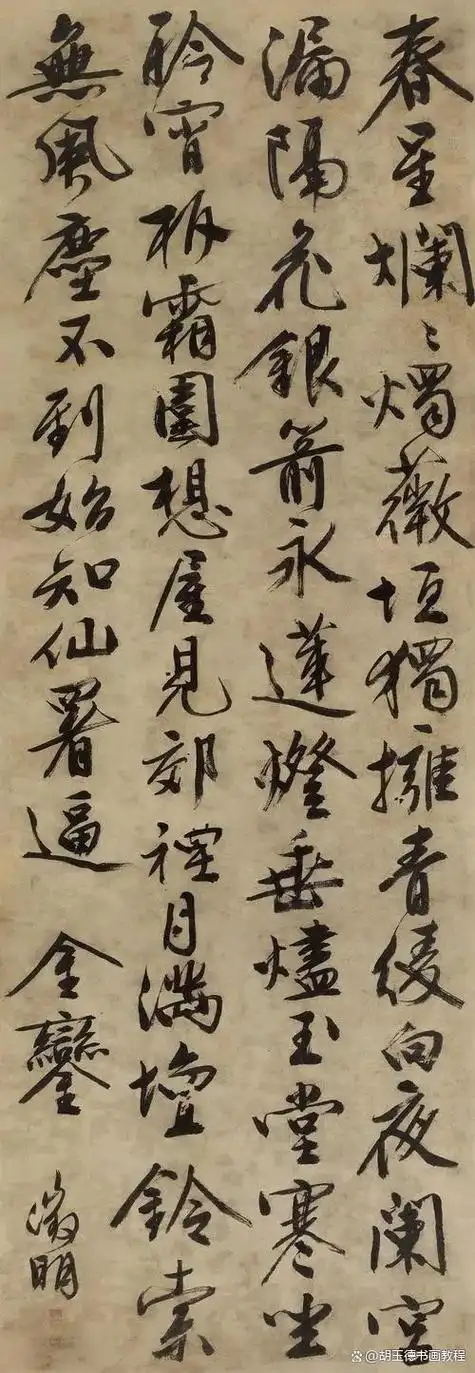 春星爛〻燭薇垣獨擁青綾向夜闌宮
漏隔花銀箭永蓮燈垂燼玉堂寒坐
聆宵柝霜圍想屋見郊禋月滿壇鈴索
無風塵不到始知仙署逼 金鑾
徵明
@胡玉德书画教程